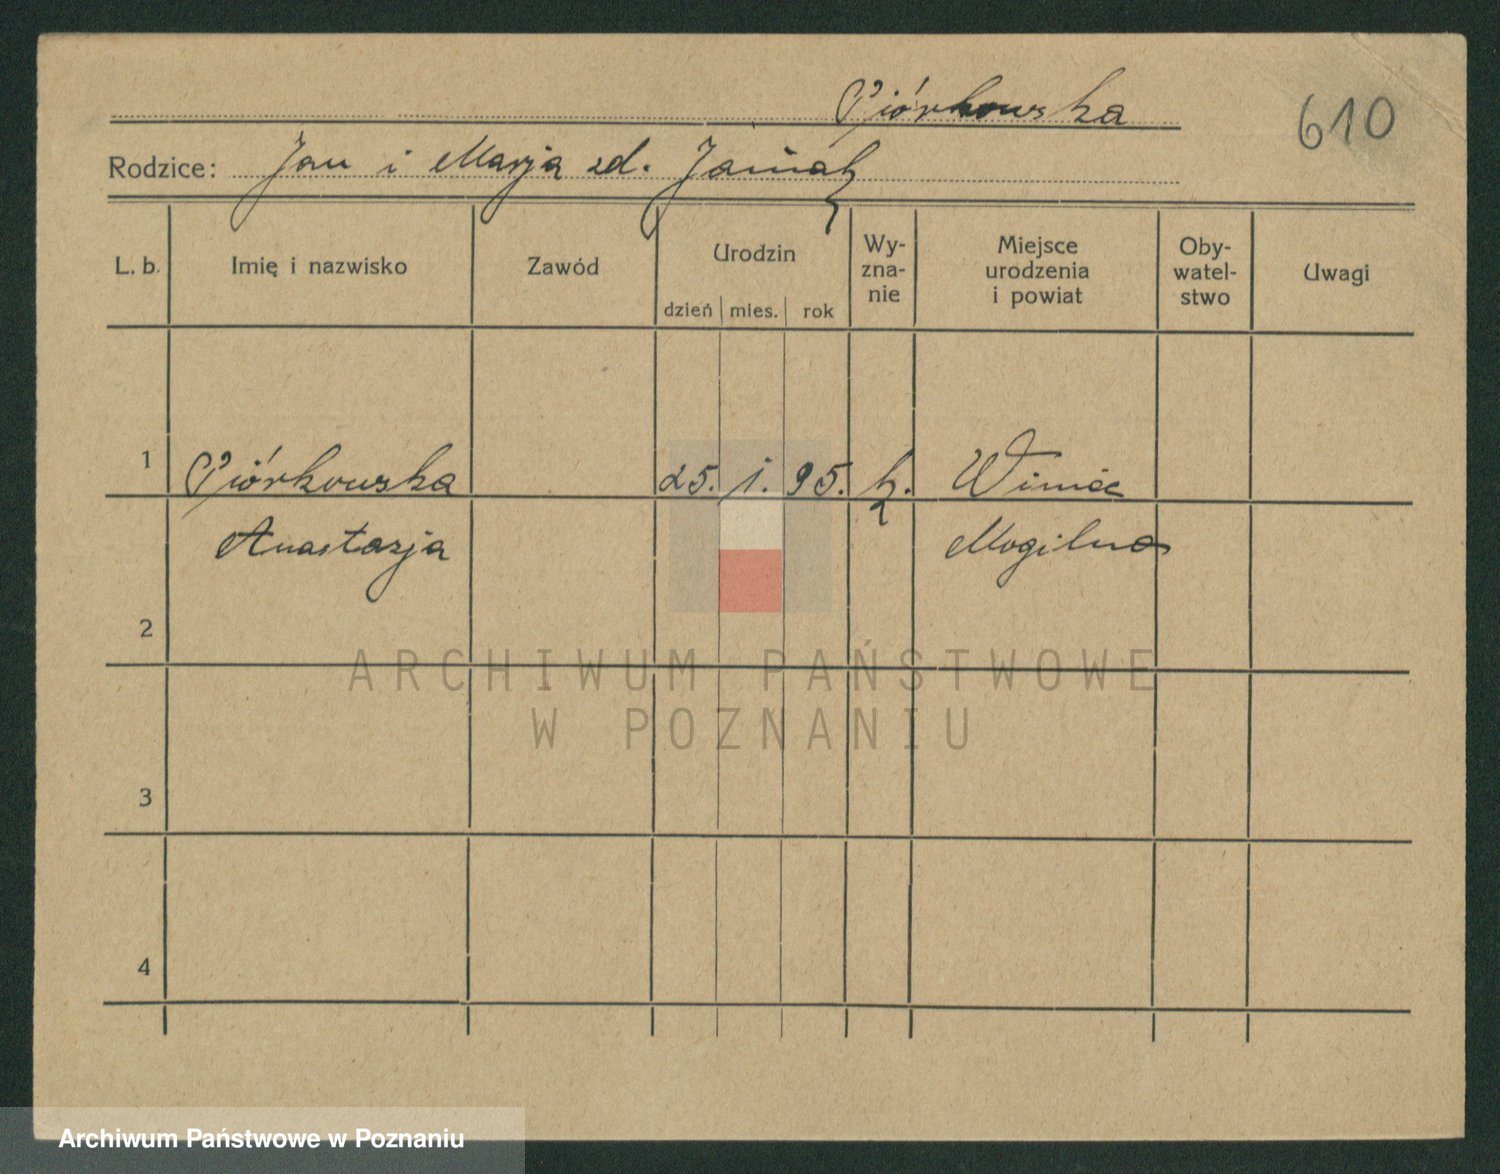 Piórkowska
610
Rodzice: Jan i Marja zd. Janiak
L. b. Imię i nazwisko Zawód Urodzin dzień mies. rok Wy-zna-nie Miejsce urodzenia i powiat Oby-watel-stwo Uwagi
1 Piórkowska 25. 1. 95. k. Winiec
Anastazja Mogilno
2
ARCHIWUM PAŃSTWOWE
W POZNANIU
3
4
Archiwum Państwowe w Poznaniu